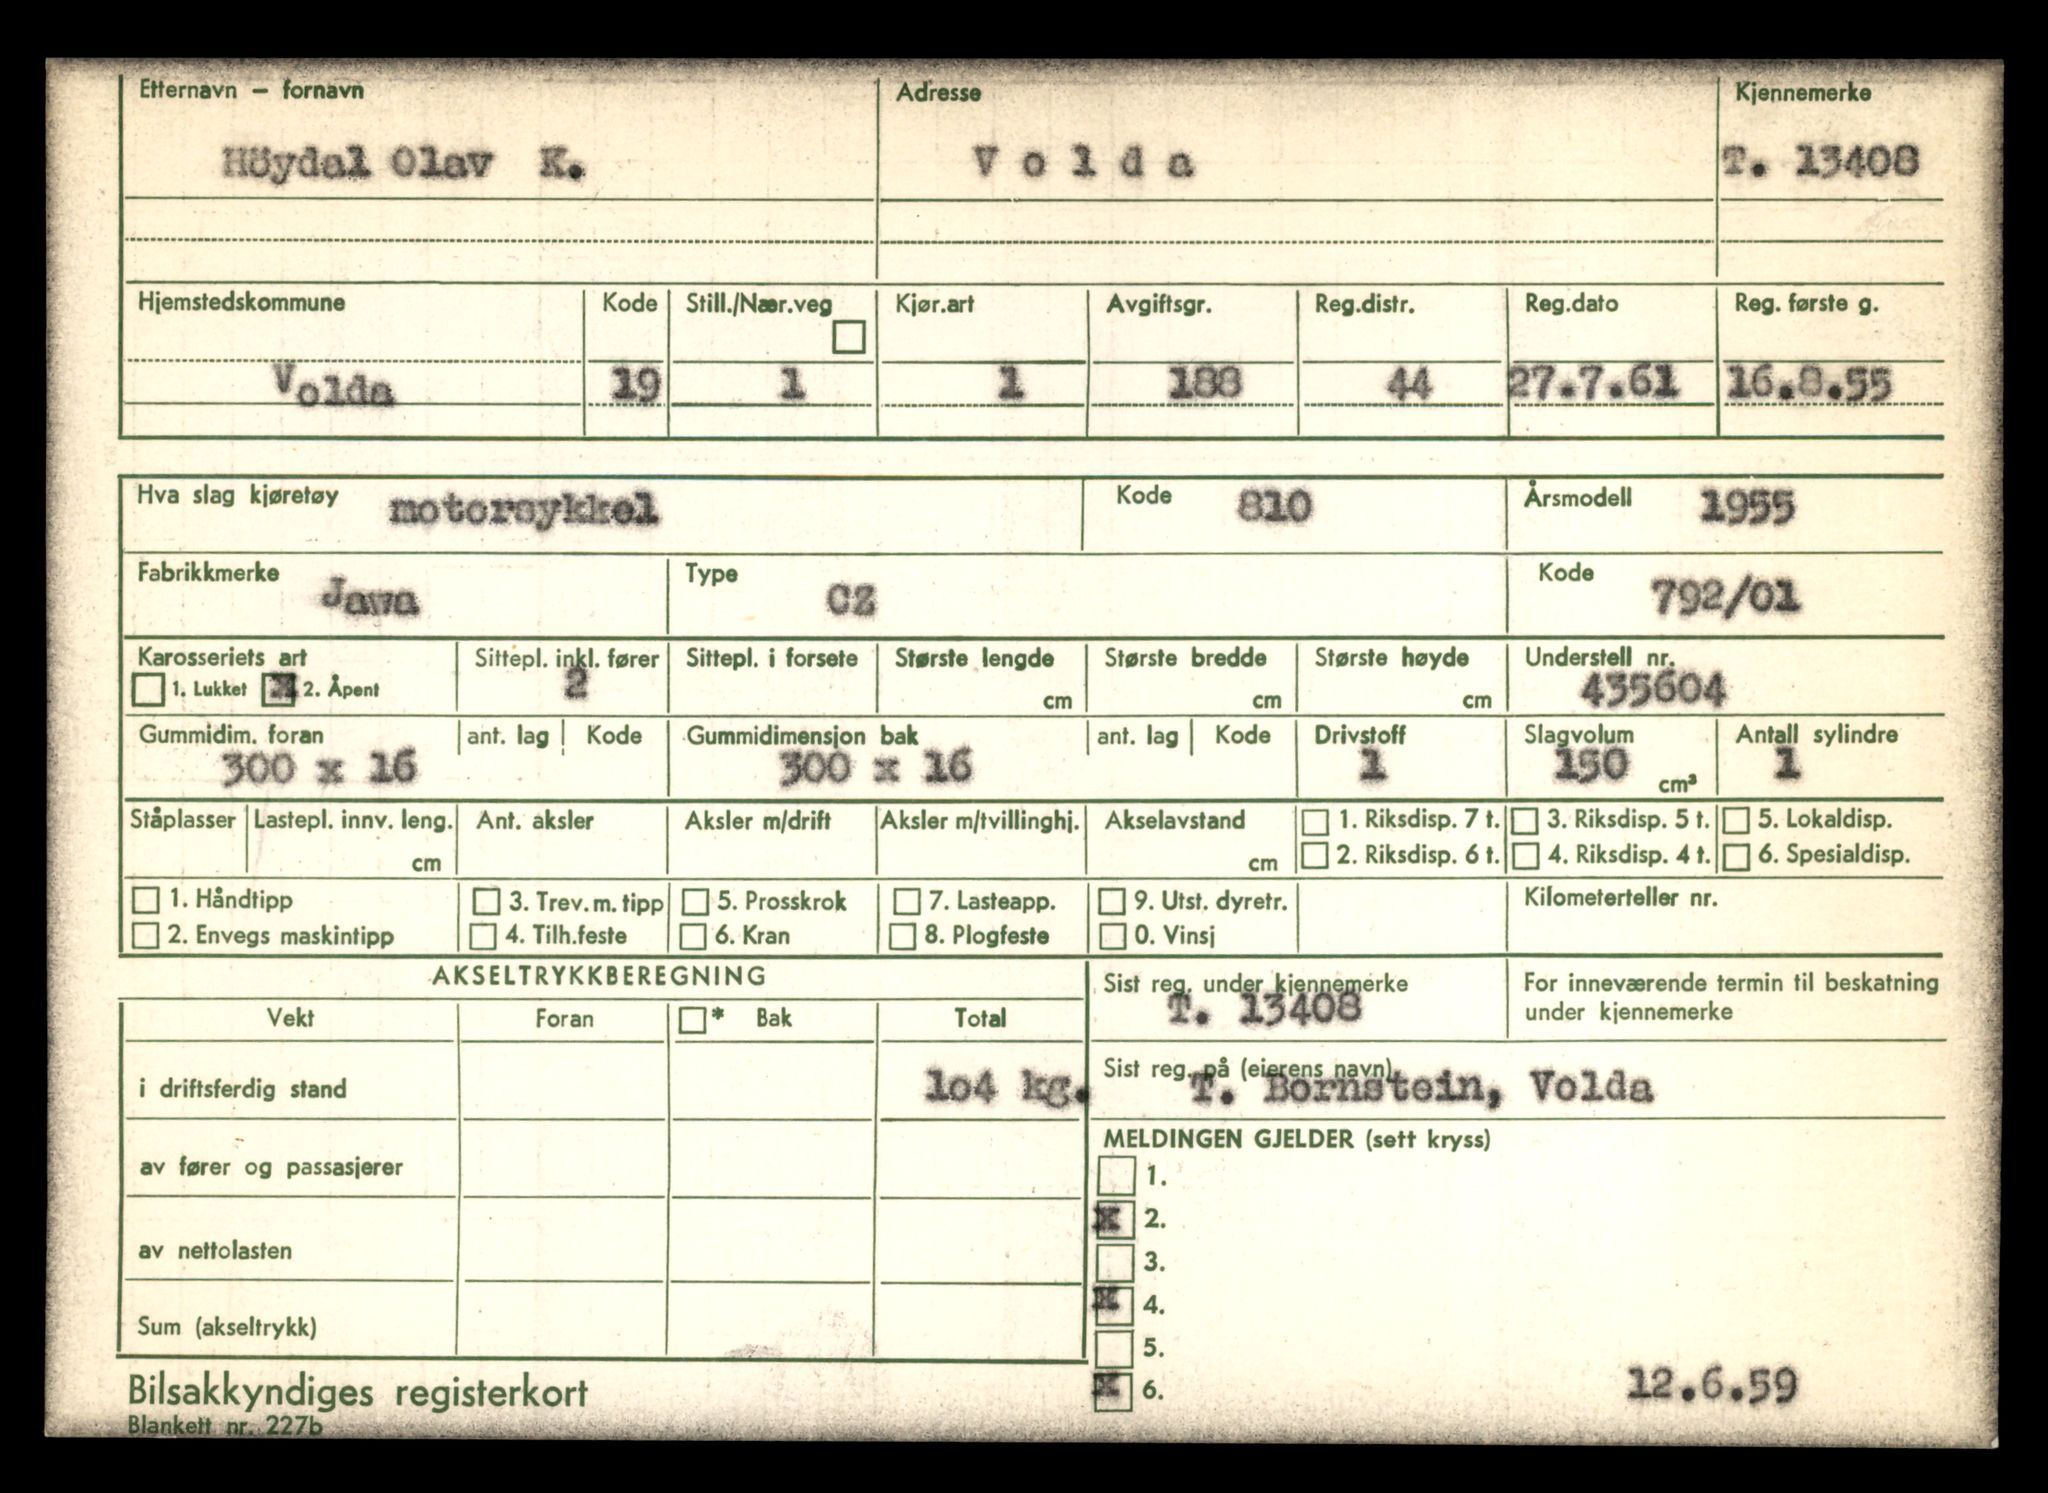 Etternavn – fornavn Adresse Kjennemerke
Höydal Olav K. Volda T. 13408
Hjemstedskommune Kode Still./Nær.veg Kjør.art Avgiftsgr. Reg.distr. Reg.dato Reg. første g.
Volda 19 1 1 188 44 27.7.61 16.8.55
Hva slag kjøretøy motorsykkel Kode 810 Årsmodell 1955
Fabrikkmerke Jawa Type CZ Kode 792/01
Karosseriets art Sittepl. inkl. fører Sittepl. i forsete Største lengde Største bredde Største høyde Understell nr.
1. Lukket x 2. Åpent 2 cm cm cm 435604
Gummidim. foran ant. lag Kode Gummidimensjon bak ant. lag Kode Drivstoff Slagvolum Antall sylindre
300 x 16 300 x 16 1 150 cm³ 1
Ståplasser Lastepl. innv. leng. Ant. aksler Aksler m/drift Aksler m/tvillinghj. Akselavstand 1. Riksdisp. 7 t. 3. Riksdisp. 5 t. 5. Lokaldisp.
cm cm 2. Riksdisp. 6 t. 4. Riksdisp. 4 t. 6. Spesialdisp.
1. Håndtipp 3. Trev. m. tipp 5. Prosskrok 7. Lasteapp. 9. Utst. dyretr. Kilometerteller nr.
2. Envegs maskintipp 4. Tilh.feste 6. Kran 8. Plogfeste 0. Vinsj
AKSELTRYKKBEREGNING
Vekt Foran * Bak Total
i driftsferdig stand 104 kg.
av fører og passasjerer
av nettolasten
Sum (akseltrykk)
Sist reg. under kjennemerke
T. 13408
For inneværende termin til beskatning
under kjennemerke
Sist reg. på (eierens navn)
T. Bornstein, Volda
MELDINGEN GJELDER (sett kryss)
1.
x 2.
3.
x 4.
5.
x 6.
12.6.59
Bilsakkyndiges registerkort
Blankett nr. 227b